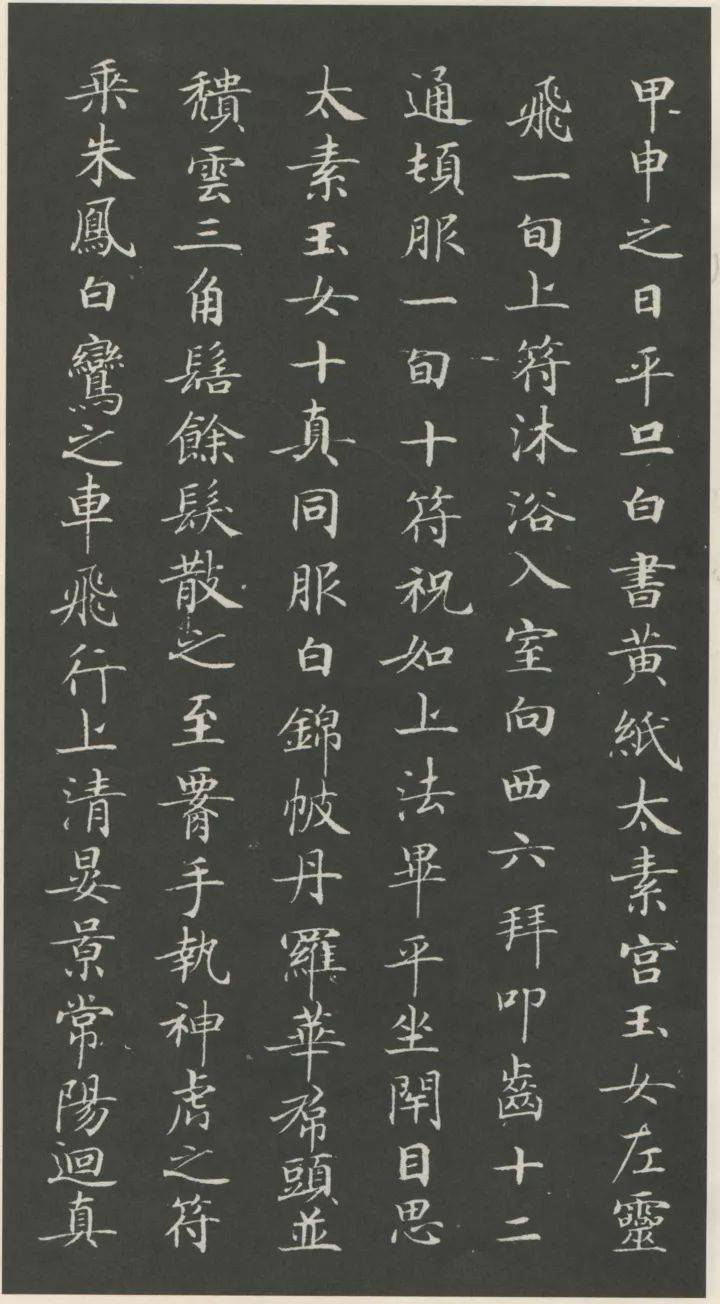 甲申之日平旦白書黄紙太素宫玉女左靈
飛一旬上符沐浴入室向西六拜叩齒十二
通頓服一旬十符祝如上法畢平坐閇目思
太素玉女十真同服白錦帔丹羅華帬頭並
頹雲三角髻餘髮散之至腰手執神虎之符
乘朱鳳白鸞之車飛行上清晏景常陽迴真